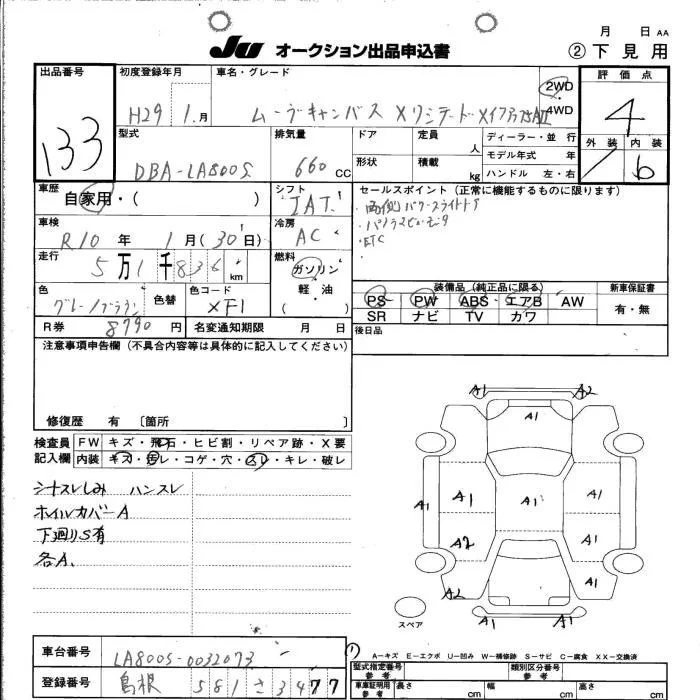 月 日 AA
JU オークション出品申込書 ②下見用
出品番号 初度登録年月 車名・グレード 評価点
133 H29年1月 ムーヴキャンバス Xリミテード 2WD 4WD 4
型式 排気量 ドア 定員 人 ディーラー・並行 外装 内装
DBA-LA800S 660 CC 形状 積載 kg モデル年式 年 6
ハンドル 左・右
車歴 自家用・( ) シフト IAT セールスポイント(正常に機能するものに限ります)
車検 R10年 1月(30日) 冷房 AC ・両側パワースライドドア
・パノラマビューモニタ
・ETC
走行 5万1千836km 燃料 ガソリン 軽油
色 グレー/ブラウン 色替 色コード XF1
装備品(純正品に限る) 新車保証書
PS PW ABS エアB AW 有・無
SR ナビ TV カワ
R券 8790円 名変通知期限 月 日 後日品
注意事項申告欄(不具合内容等は具体的に記入してください)
修復歴 有 〔箇所 〕
検査員記入欄 FW キズ・飛石・ヒビ割・リペア跡・X要
内装 キズ・汚レ・コゲ・穴・スレ・キレ・破レ
シートスレしみ ハンスレ
ホイルカバーA
下廻りS有
各A.
A1 A2
A1
A1 A1 A1 A1 A1
A2 A1
A2 A1
A1 A1
スペア
車台番号 LA800S-0032073
登録番号 島根 581 さ 3477
A-キズ E-エクボ U-凹み W-補修跡 S-サビ C-腐食 XX-交換済
型式指定番号 参考 類別区分番号 参考
車車証明用 参考 長さ cm 幅 cm 高さ cm